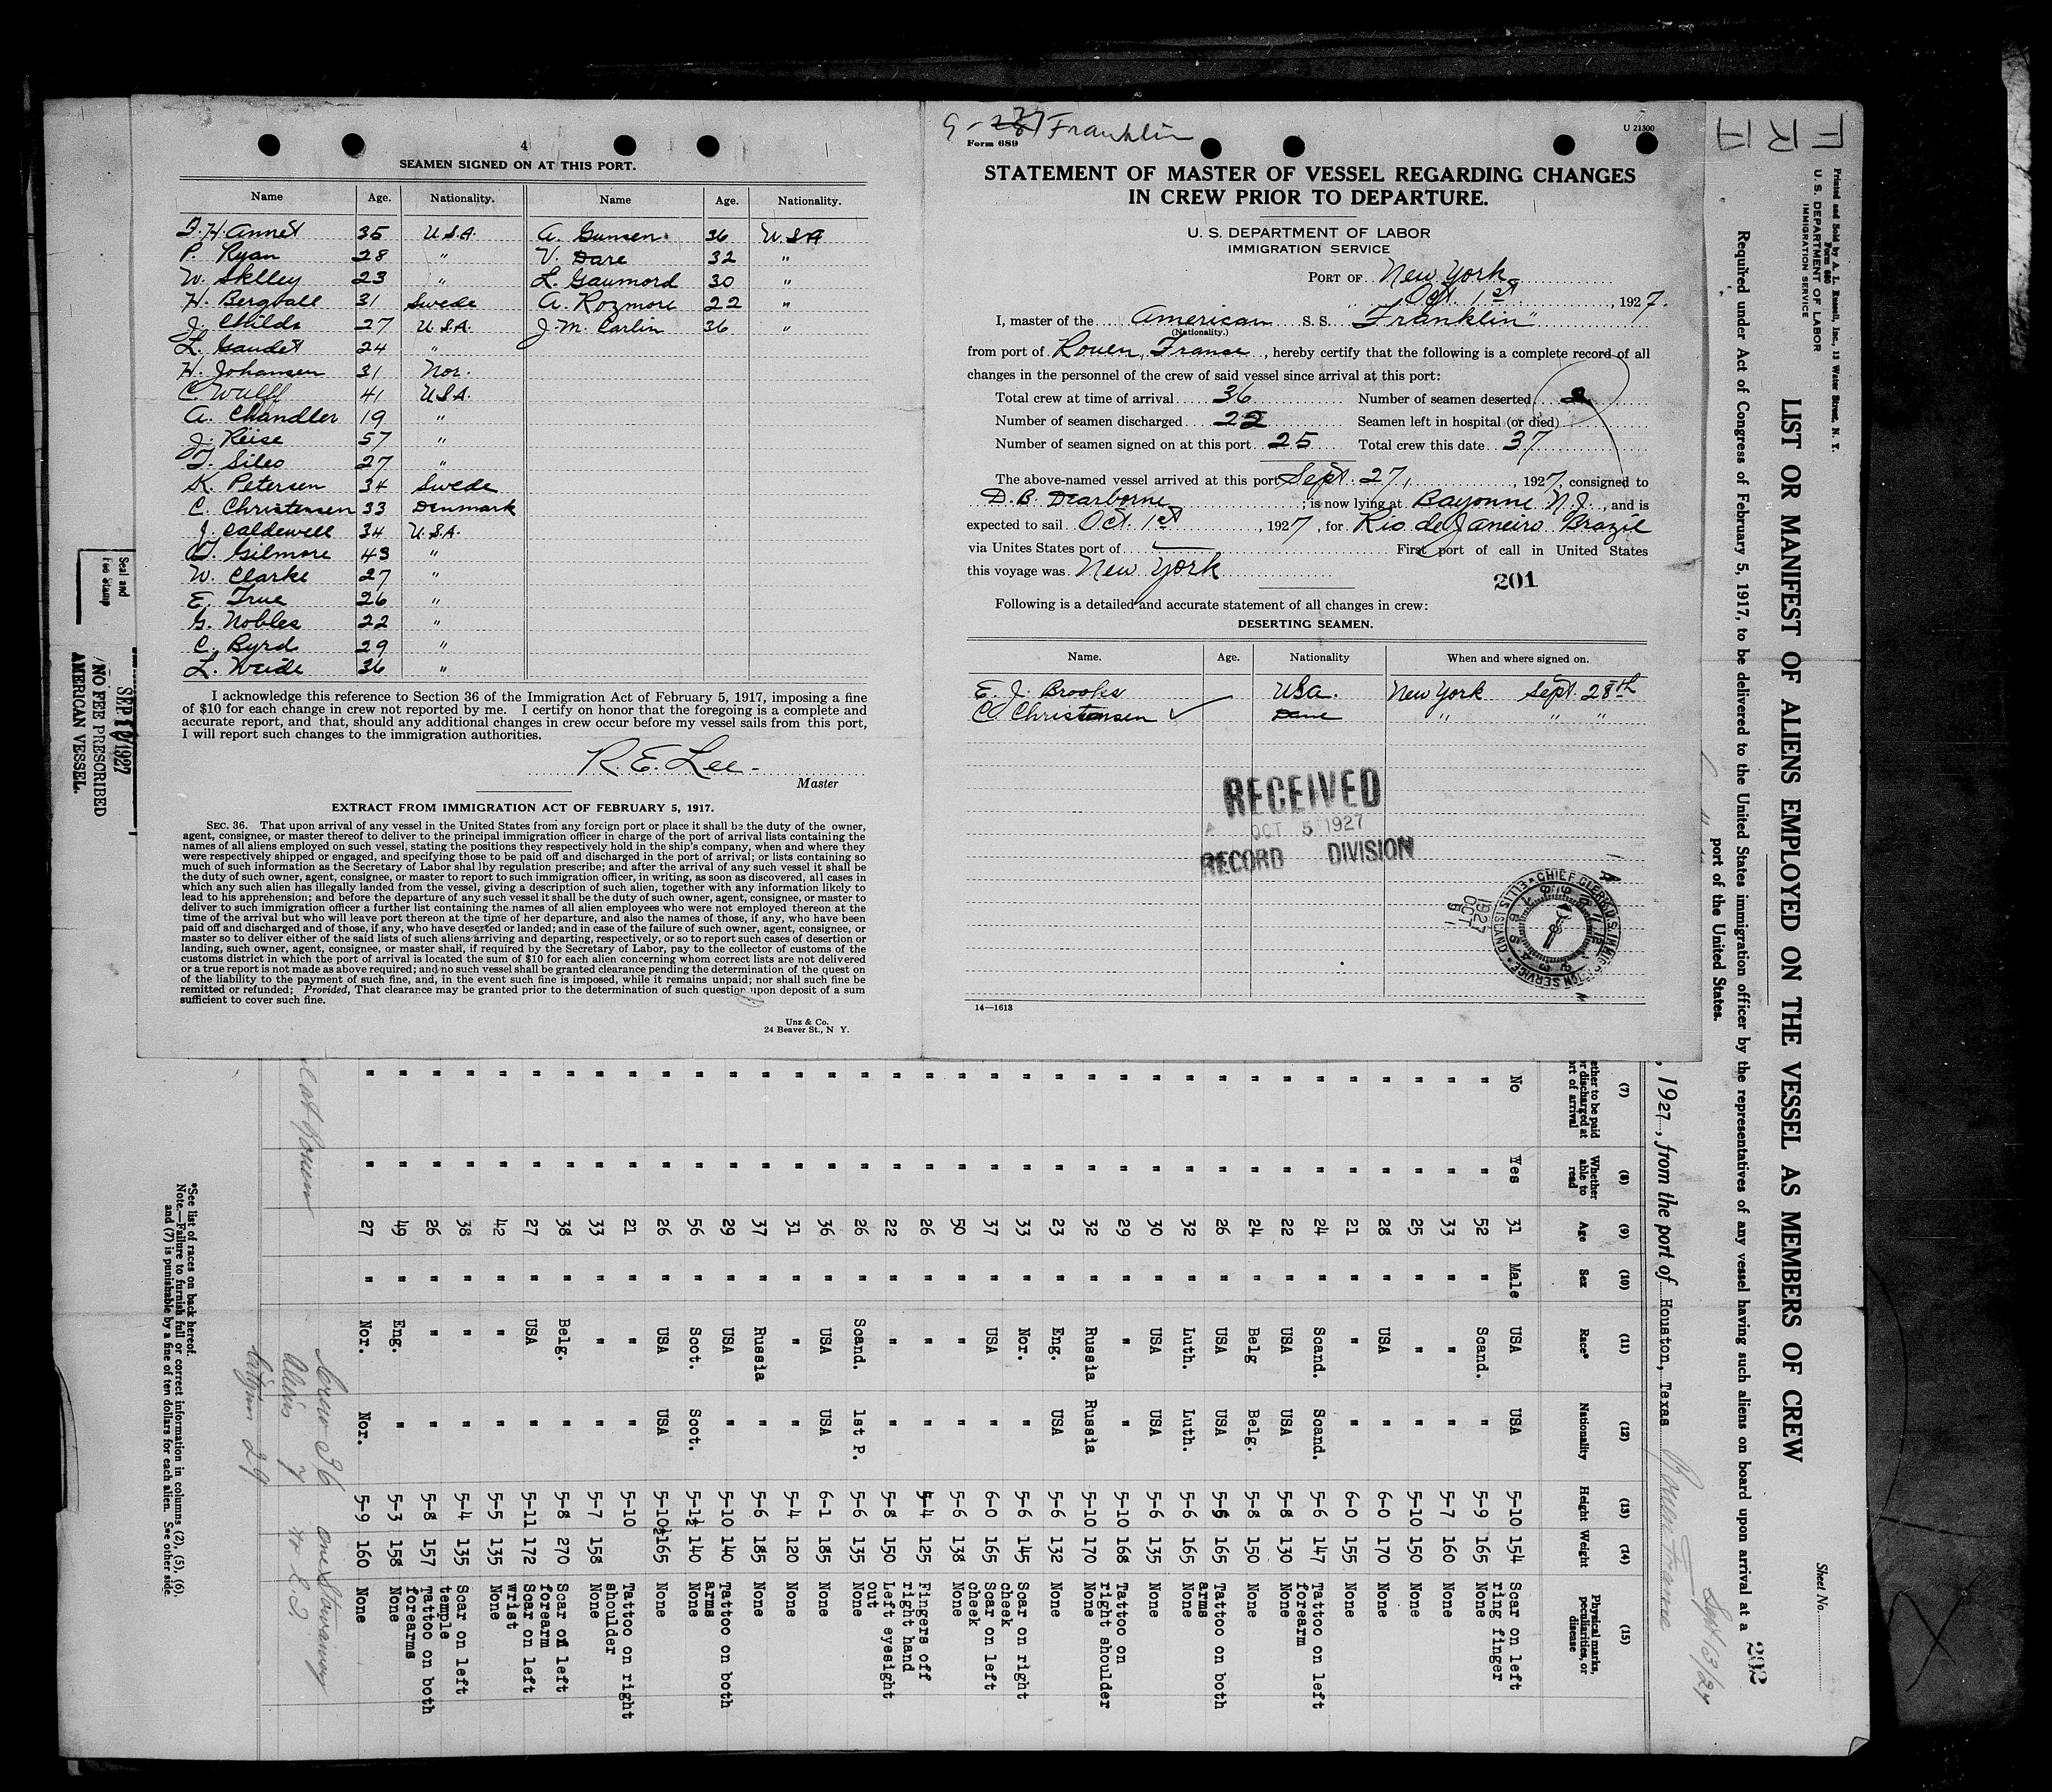 4
SEAMEN SIGNED ON AT THIS PORT.
Name Age. Nationality. Name Age. Nationality.
F. H. Annet 35 U.S.A. A. Gunsen 36 U.S.A
P. Ryan 28 " V. Dare 32 "
W. Sklley 23 " L. Gaumord 30 "
H. Bergball 31 Swede A. Rozmore 22 "
J. Childs 27 U.S.A. J. M. Carlin 36 "
L. Gaudet 24 "
H. Johansen 31 Nor.
C. Wulff 41 U.S.A.
A. Chandler 19 "
J. Reise 57 "
T. Sileo 27 "
K. Petersen 34 Swede
C. Christensen 33 Denmark
J. Caldewell 34 U.S.A.
Gilmore 43 "
W. Clarke 27 "
E. True 26 "
G. Nobles 22 "
C. Byrd 29 "
L. Weide 36 "
I acknowledge this reference to Section 36 of the Immigration Act of February 5, 1917, imposing a fine
of $10 for each change in crew not reported by me. I certify on honor that the foregoing is a complete and
accurate report, and that, should any additional changes in crew occur before my vessel sails from this port,
I will report such changes to the immigration authorities.
R. E. Lee
Master
EXTRACT FROM IMMIGRATION ACT OF FEBRUARY 5, 1917.
SEC. 36. That upon arrival of any vessel in the United States from any foreign port or place it shall be the duty of the owner,
agent, consignee, or master thereof to deliver to the principal immigration officer in charge of the port of arrival lists containing the
names of all aliens employed on such vessel, stating the positions they respectively hold in the ship's company, when and where they
were respectively shipped or engaged, and specifying those to be paid off and discharged in the port of arrival; or lists containing so
much of such information as the Secretary of Labor shal lby regulation prescribe; and after the arrival of any such vessel it shall be
the duty of such owner, agent, consignee, or master to report to such immigration officer, in writing, as soon as discovered, all cases in
which any such alien has illegally landed from the vessel, giving a description of such alien, together with any information likely to
lead to his apprehension; and before the departure of any such vessel it shall be the duty of such owner, agent, consignee, or master to
deliver to such immigration officer a further list containing the names of all alien employees who were not employed thereon at the
time of the arrival but who will leave port thereon at the time of her departure, and also the names of those, if any, who have been
paid off and discharged and of those, if any, who have deserted or landed; and in case of the failure of such owner, agent, consignee, or
master so to deliver either of the said lists of such aliens arriving and departing, respectively, or so to report such cases of desertion or
landing, such owner, agent, consignee, or master shall, if required by the Secretary of Labor, pay to the collector of customs of the
customs district in which the port of arrival is located the sum of $10 for each alien concerning whom correct lists are not delivered
or a true report is not made as above required; and no such vessel shall be granted clearance pending the determination of the quest on
of the liability to the payment of such fine, and, in the event such fine is imposed, while it remains unpaid; nor shall such fine be
remitted or refunded; Provided, That clearance may be granted prior to the determination of such question upon deposit of a sum
sufficient to cover such fine.
Unz & Co.
24 Beaver St., N Y.
Franklin
U 21300
Form 689
STATEMENT OF MASTER OF VESSEL REGARDING CHANGES
IN CREW PRIOR TO DEPARTURE.
U. S. DEPARTMENT OF LABOR
IMMIGRATION SERVICE
PORT OF New York
Oct. 1st, 1927.
I, master of the American S. S. "Franklin"
(Nationality.)
from port of Rouen, France, hereby certify that the following is a complete record of all
changes in the personnel of the crew of said vessel since arrival at this port:
Total crew at time of arrival 36 Number of seamen deserted 2
Number of seamen discharged 22 Seamen left in hospital (or died)
Number of seamen signed on at this port 25 Total crew this date 37
The above-named vessel arrived at this port Sept. 27, 1927, consigned to
D. B. Dearborne; is now lying at Bayonne N.J., and is
expected to sail Oct. 1st, 1927, for Rio de Janeiro Brazil
via Unites States port of First port of call in United States
this voyage was New York
201
Following is a detailed and accurate statement of all changes in crew:
DESERTING SEAMEN.
Name. Age. Nationality When and where signed on.
E. J. Brooks USA. New York Sept. 28th
C. Christensen ✓ Dane " " "
RECEIVED
OCT 5 1927
RECORD DIVISION
CHIEF CLERK U.S. IMMIGRATION SERVICE ELLIS ISLAND
1927
OCT
14—1613
FRA
Printed and Sold by A. L. Russell, Inc., 12 Water Street, N. Y.
Form 680
U. S. DEPARTMENT OF LABOR
IMMIGRATION SERVICE
Sheet No.
LIST OR MANIFEST OF ALIENS EMPLOYED ON THE VESSEL AS MEMBERS OF CREW
202
Required under Act of Congress of February 5, 1917, to be delivered to the United States immigration officer by the representatives of any vessel having such aliens on board upon arrival at a
port of the United States.
, 1927, from the port of Houston, Texas Rouen France Sept 13/27
(7) (8) (9) (10) (11) (12) (13) (14) (15)
ether to be paid
r discharged at
rt of arrival
Whether able to read Age Sex Race* Nationality Height Weight Physical marks, peculiarities, or disease
No Yes 31 Male USA USA 5-10 154 Scar on left ring finger
" " 52 " Scand. " 5-9 165 None
" " 33 " " " 5-7 160 None
" " 25 " " " 5-10 150 None
" " 28 " USA " 6-0 170 None
" " 21 " " " 6-0 155 None
" " 24 " Scand. Scand. 5-6 147 Tattoo on left forearm
" " 22 " USA USA 5-8 130 None
" " 24 " Belg Belg. 5-8 150 None
" " 26 " USA USA 5-5 165 Tattoo on both arms
" " 32 " Luth. Luth. 5-6 165 None
" " 30 " USA USA 5-6 135 None
" " 29 " " " 5-10 168 Tattoo on right shoulder
" " 32 " Russia Russia 5-10 170 None
" " 23 " Eng. USA 5-6 132 None
" " 33 " Nor. " 5-6 145 Scar on right cheek
" " 37 " USA " 6-0 165 Scar on left cheek
" " 50 " " " 5-6 138 None
" " 26 " " " 5-4 125 Fingers off right hand
" " 22 " " " 5-8 150 Left eyesight out
" " 26 " Scand. 1st P. 5-6 135 None
" " 36 " USA USA 6-1 185 None
" " 31 " " " 5-4 120 None
" " 37 " Russia " 5-6 185 None
" " 29 " USA " 5-10 140 Tattoo on both arms
" " 56 " Scot. Scot. 5-1½ 140 None
" " 26 " USA USA 5-10½ 165 None
" " 21 " " " 5-10 Tattoo on right shoulder
" " 33 " " " 5-7 158 None
" " 38 " Belg. " 5-8 270 Scar on left forearm
" " 27 " USA " 5-11 172 Scar on left wrist
" " 42 " " " 5-5 135 None
" " 38 " " " 5-4 135 Scar on left temple
" " 26 " " " 5-8 157 Tattoo on both forearms
" " 49 " Eng. " 5-3 158 None
" " 27 " Nor. Nor. 5-9 160 None
at Rouen
Crew 36 one Stowaway
Aliens 7
Citizens 29
*See list of races on back hereof.
Note.—Failure to furnish full or correct information in columns (2), (5), (6),
and (7) is punishable by a fine of ten dollars for each alien. See other side.
Seal and
Fee Stamp
SEP 1927
NO FEE PRESCRIBED
AMERICAN VESSEL.